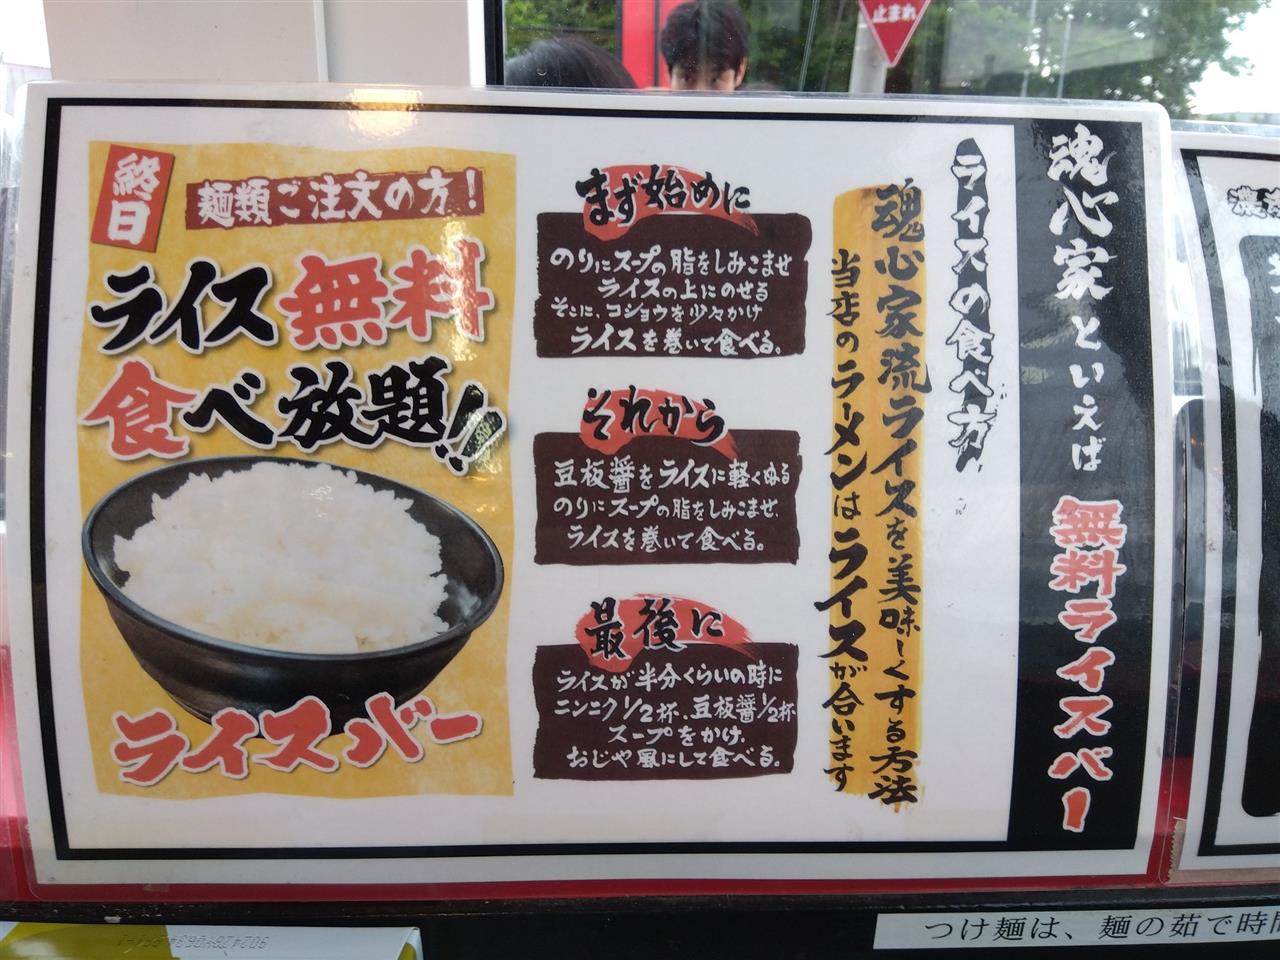 止まれ
魂心家といえば 無料ライスバー
ライスの食べ方
魂心家流ライスを美味しくする方法
当店のラーメンはライスが合います
まず始めに
のりにスープの脂をしみこませ
ライスの上にのせる
そこに、コショウを少々かけ
ライスを巻いて食べる。
それから
豆板醤をライスに軽くぬる
のりにスープの脂をしみこませ、
ライスを巻いて食べる。
最後に
ライスが半分くらいの時に
ニンニク1/2杯、豆板醤1/2杯
スープをかけ、
おじや風にして食べる。
終日
麺類ご注文の方!
ライス無料
食べ放題!!
ライスバー
つけ麺は、麺の茹で時間